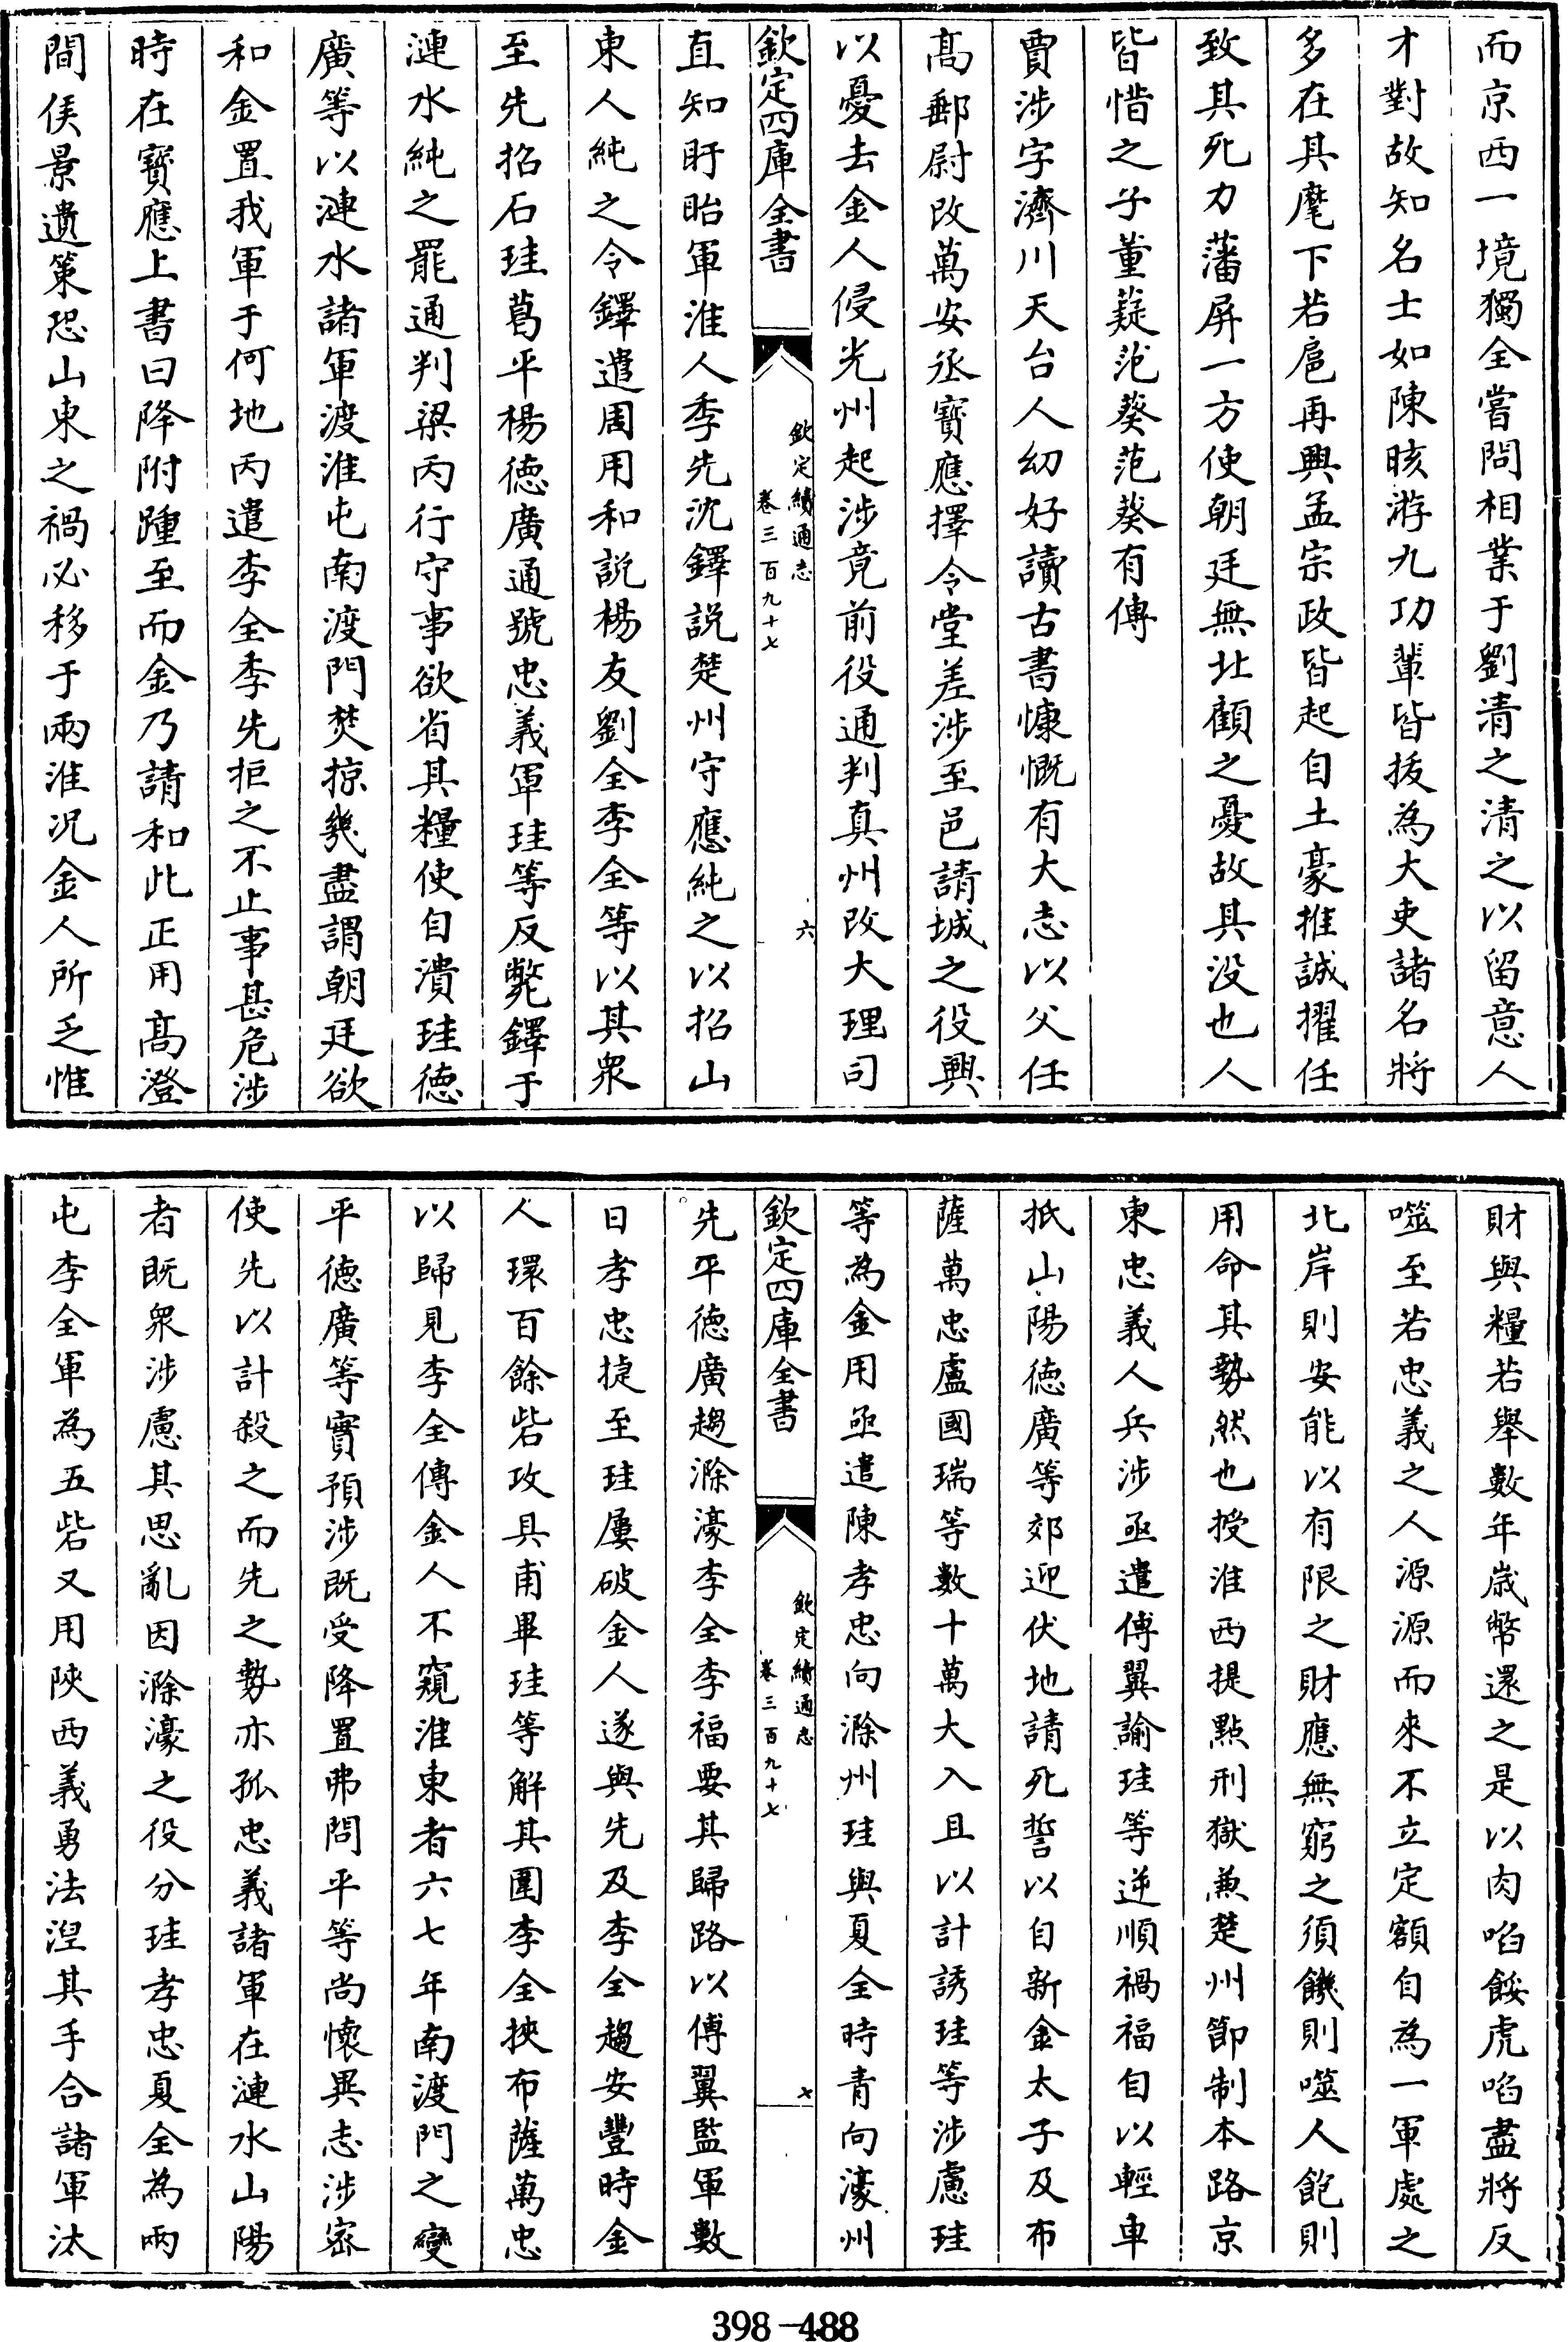 而京西一境獨全嘗問相業于劉清之清之以留意人
才對故知名士如陳晐游九功輩皆拔為大吏諸名將
多在其麾下若扈再興孟宗政皆起自土豪推誠擢任
致其死力藩屏一方使朝廷無北顧之憂故其沒也人
皆惜之子董薿范葵范葵有傳
賈涉字濟川天台人幼好讀古書慷慨有大志以父任
高郵尉改萬安丞寶應擇令堂差涉至邑請城之役興
以憂去金人侵光州起涉竟前役通判真州改大理司
欽定四庫全書
欽定續通志
卷三百九十七
六
直知盱眙軍淮人季先沈鐸説楚州守應純之以招山
東人純之令鐸遣周用和説楊友劉全李全等以其衆
至先招石珪葛平楊德廣通號忠義軍珪等反斃鐸于
漣水純之罷通判梁丙行守事欲省其糧使自潰珪德
廣等以漣水諸軍渡淮屯南渡門焚掠幾盡謂朝廷欲
和金置我軍于何地丙遣李全季先拒之不止事甚危涉
時在寶應上書曰降附踵至而金乃請和此正用高澄
間侯景遺策恐山東之禍必移于兩淮况金人所乏惟
財與糧若舉數年嵗幣還之是以肉啗餒虎啗盡將反
噬至若忠義之人源源而來不立定額自為一軍處之
北岸則安能以有限之財應無窮之須饑則噬人飽則
用命其勢然也授淮西提點刑獄兼楚州節制本路京
東忠義人兵涉亟遣傅翼諭珪等逆順禍福自以輕車
抵山陽德廣等郊迎伏地請死誓以自新金太子及布
薩萬忠盧國瑞等數十萬大入且以計誘珪等涉慮珪
等為金用亟遣陳孝忠向滁州珪與夏全時青向濠州
欽定四庫全書
欽定續通志
卷三百九十七
七
先平德廣趨滁濠李全李福要其歸路以傅翼監軍數
日孝忠捷至珪屢破金人遂與先及李全趨安豐時金
人環百餘砦攻具甫畢珪等解其圍李全挾布薩萬忠
以歸見李全傳金人不窺淮東者六七年南渡門之變
平德廣等實預涉既受降置弗問平等尚懷異志涉密
使先以計殺之而先之勢亦孤忠義諸軍在漣水山陽
者既衆涉慮其思亂因滁濠之役分珪孝忠夏全為兩
屯李全軍為五砦又用陜西義勇法涅其手合諸軍汰